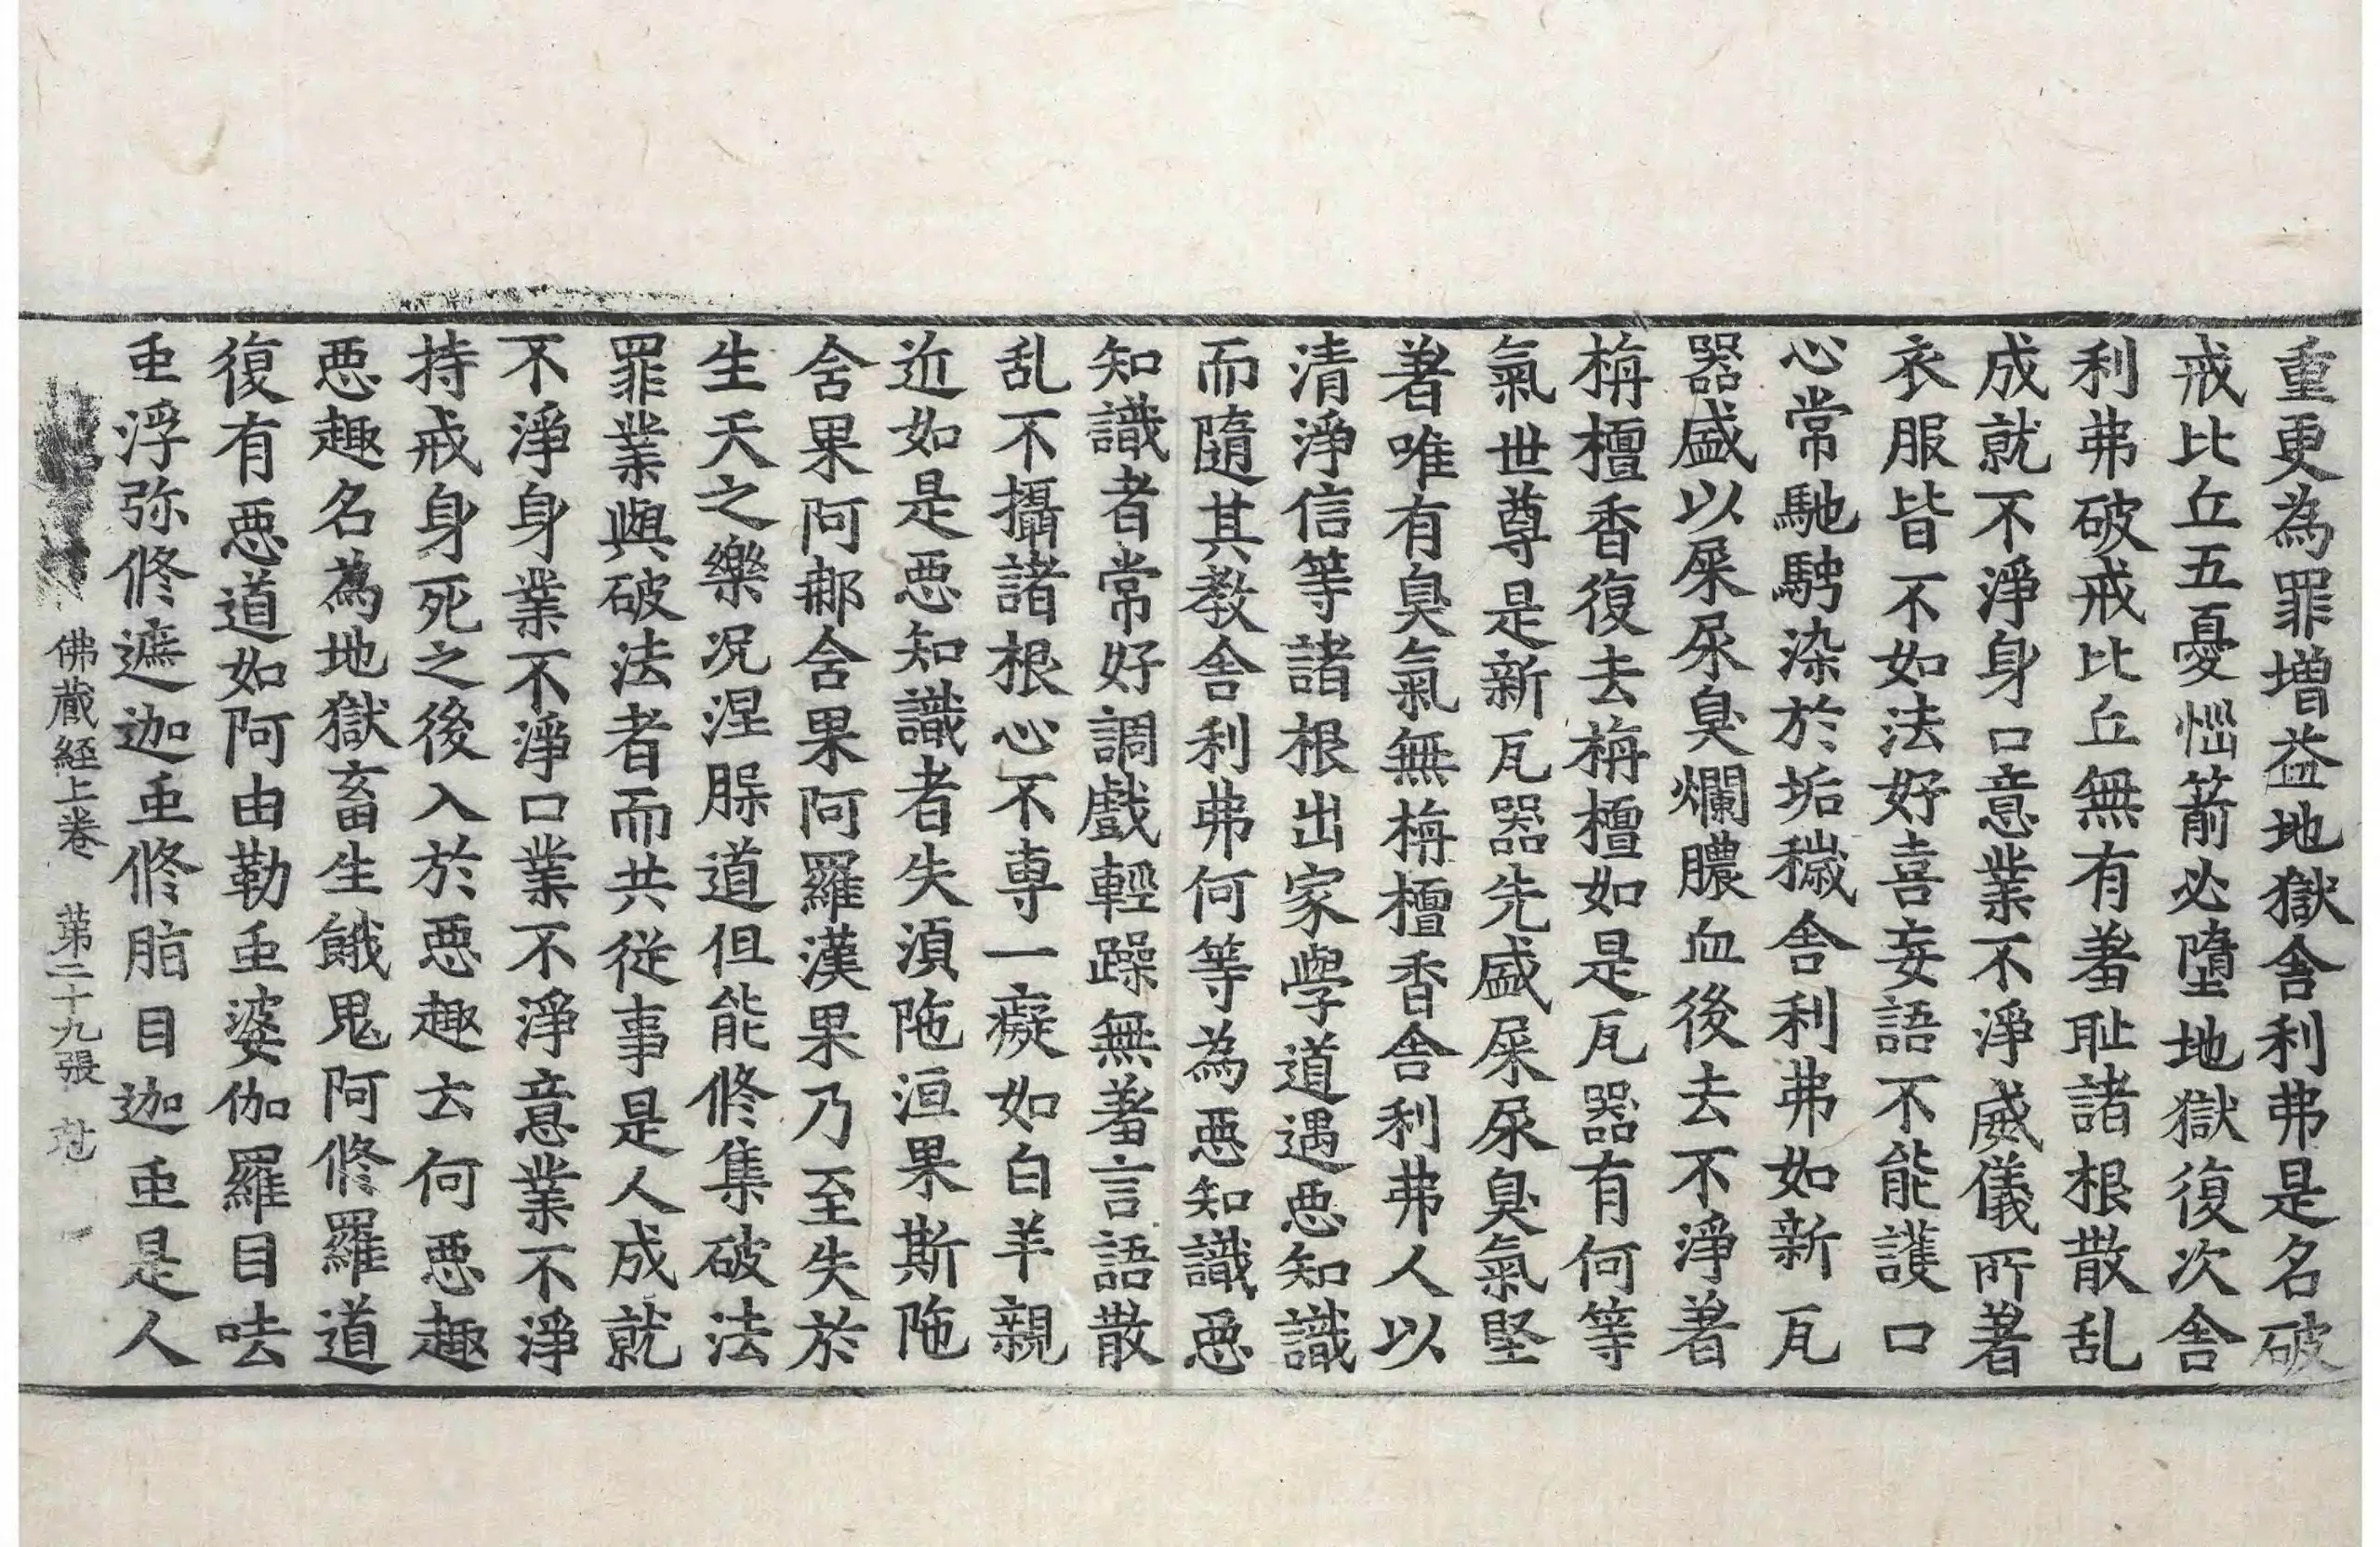 重更為罪增益地獄舍利弗是名破
戒比丘五憂惱箭必墮地獄復次舍
利弗破戒比丘無有羞耻諸根散乱
成就不淨身口意業不淨威儀所著
衣服皆不如法好喜妄語不能護口
心常馳騁染於垢穢舍利弗如新瓦
器盛以屎尿臭爛膿血後去不淨著
栴檀香復去栴檀如是瓦器有何等
氣世尊是新瓦器先盛屎尿臭氣堅
著唯有臭氣無栴檀香舍利弗人以
清淨信等諸根出家學道遇惡知識
而隨其教舍利弗何等為惡知識惡
知識者常好調戲輕躁無羞言語散
乱不攝諸根心不専一癡如白羊親
近如是惡知識者失湏陁洹果斯陁
舍果阿那舍果阿羅漢果乃至失於
生天之樂况涅槃道但能修集破法
罪業與破法者而共従事是人成就
不淨身業不淨口業不淨意業不淨
持戒身死之後入於惡趣云何惡趣
惡趣名為地獄畜生餓鬼阿修羅道
復有惡道如阿由勒䖝婆伽羅目呿
䖝浮弥修遮迦䖝修脂目迦䖝是人
佛蔵経上卷 苐二十九張